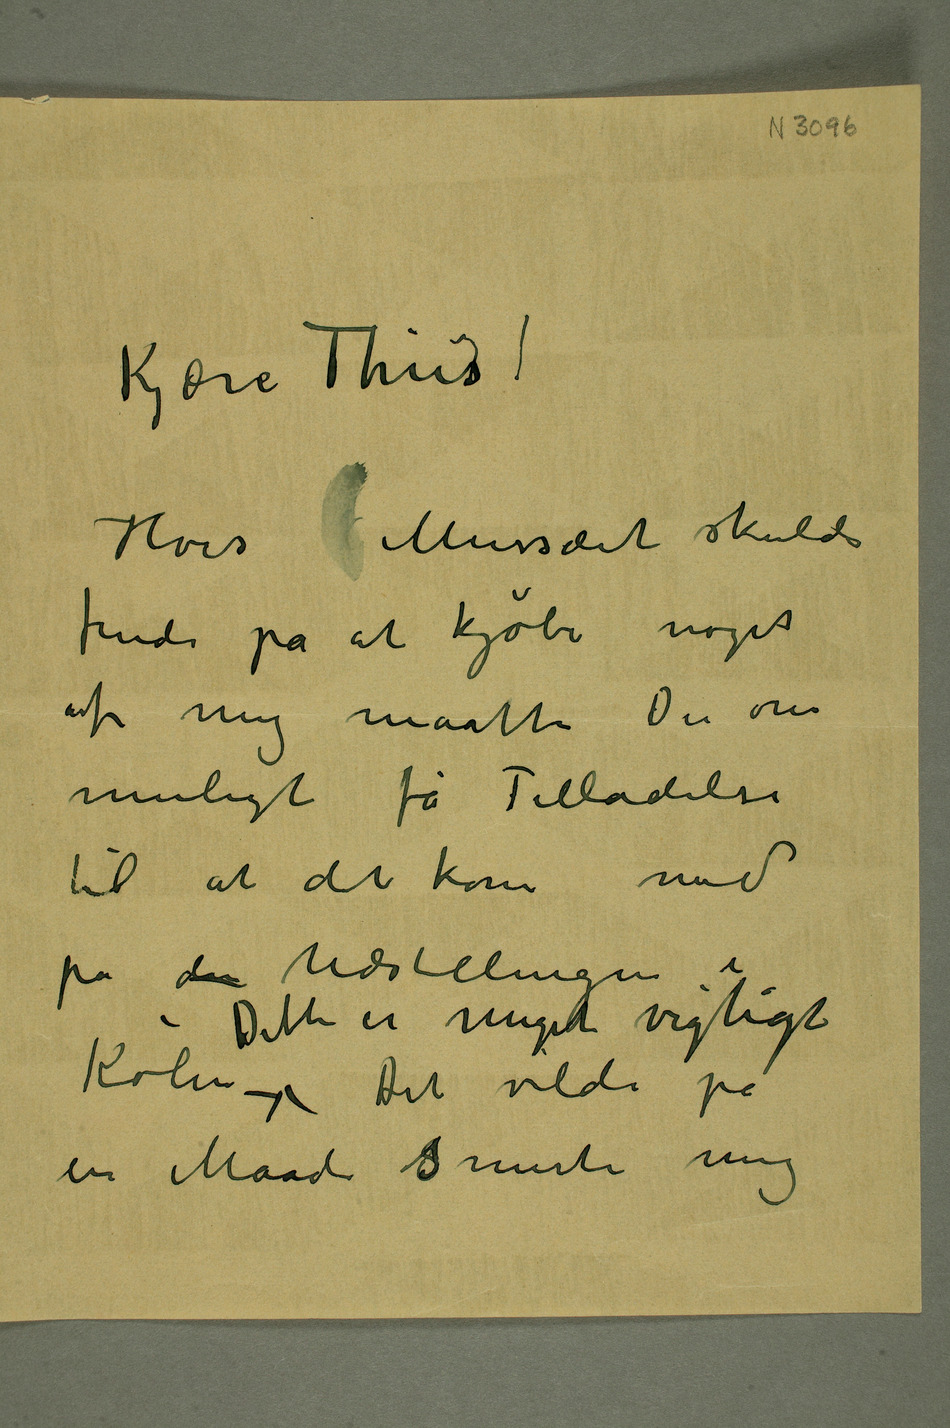 N 3096
Kjære Thiis!
Hvis Mussæet skulde
finde på at kjøbe noget
af mig maatte Du om
muligt få Tilladelse
til at det kom med
på den Udstillingen i
Dette er meget vigtigt
Køln – Det vilde på
en Maade smerte mig